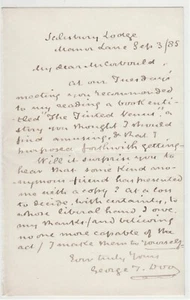 Salisbury Lodge
Manor Lane Sep 3/85
My dear McCorbould
At our Tuesdays'
meeting you recommended
to my reading a book enti-
tled "The Tinted Venus", a
story you thought I should
find amusing & that I
purposed forthwith getting.
Will it surprise you to
hear that some kind ano-
nymous friend has presented
me with a copy? At a loss
to decide, with certainty, to
whose liberal hand I owe
my thanks, and believing
no one more capable of the
act, I make them to yourself.
Your truly Yours
George T. Dvo